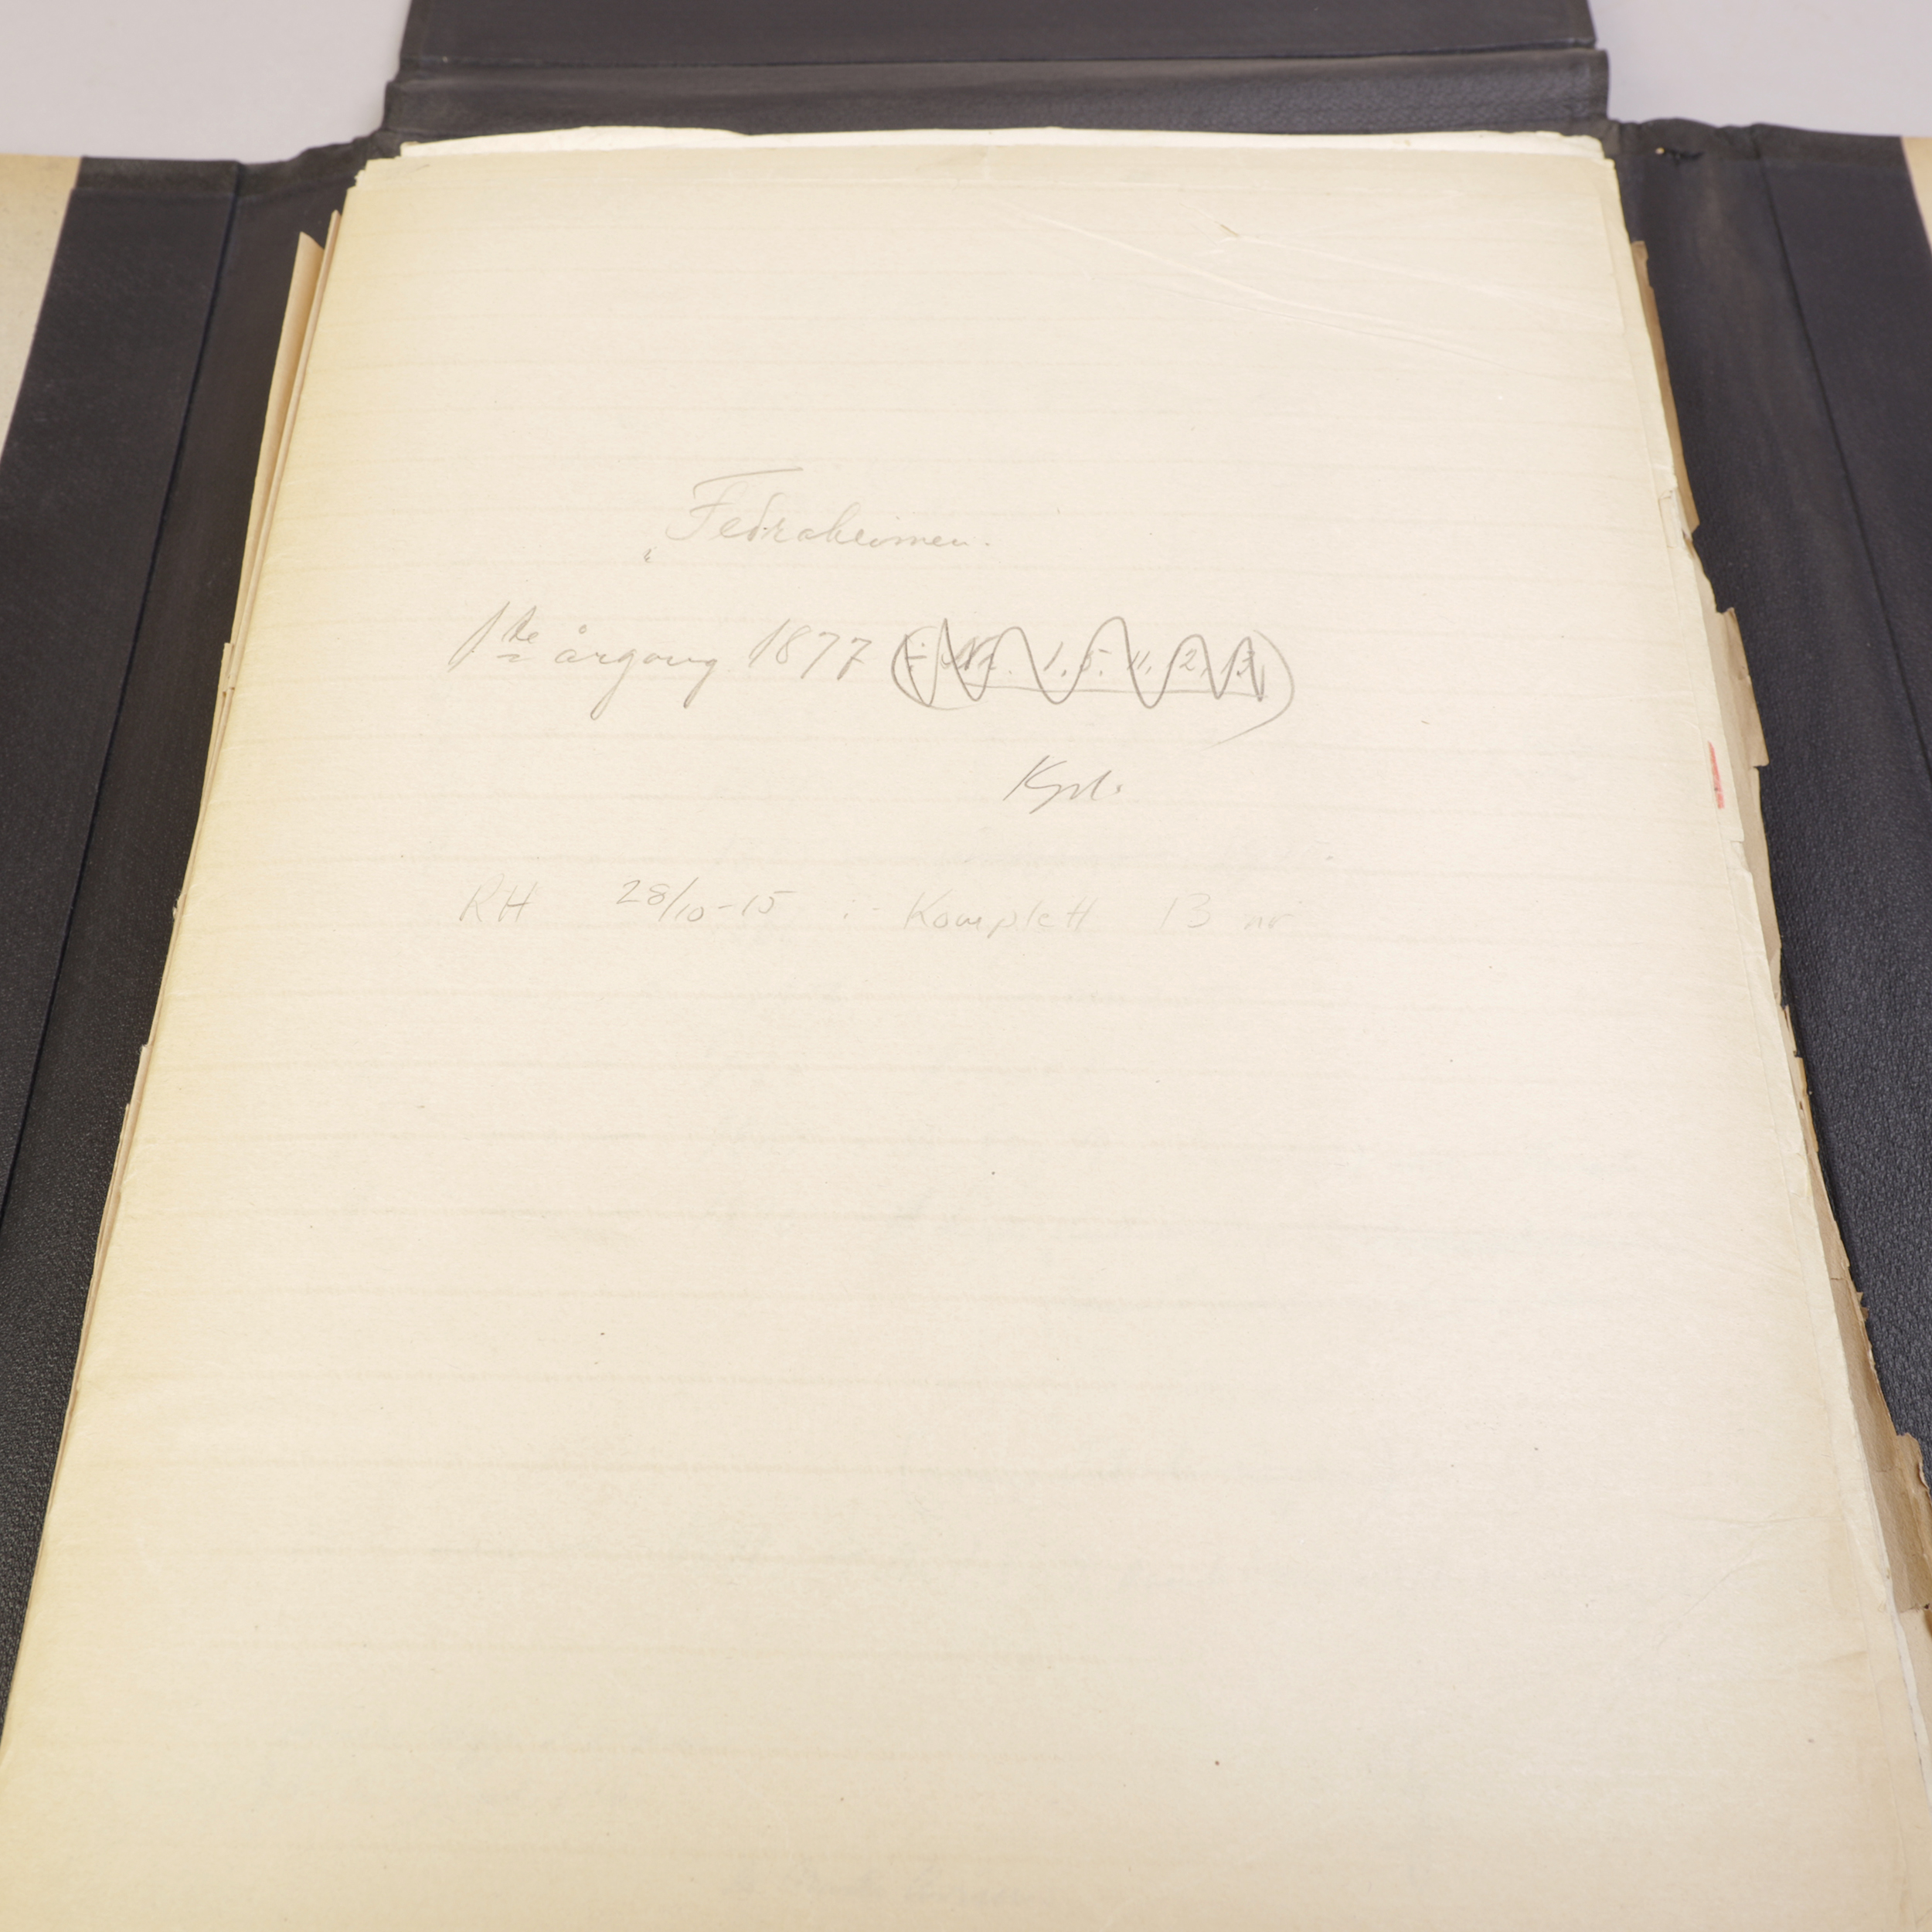 „Fedraheimen.
1ste årgang 1877 (÷ Nr. 1, 5. 11. 12, 13)
Kpl.
RH 28/10-15 : Komplett 13 nr